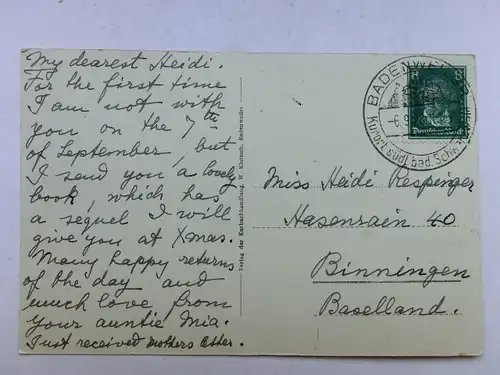 My dearest Heidi.
For the first time
I am not with
you on the 7th
of September, but
I send you a lovely
book, which has
a sequel I will
give you at Xmas.
Many happy returns
of the day and
much love from
your auntie Mia.
Just received mothers letter.
Verlag der Kurbuchhandlung, W. Badenweiler
BADENWEILER
8 8
-6.9.
Kurort südl. bad.
Miss Heidi Respinger
Hasenrain 40
Binningen
Baselland.